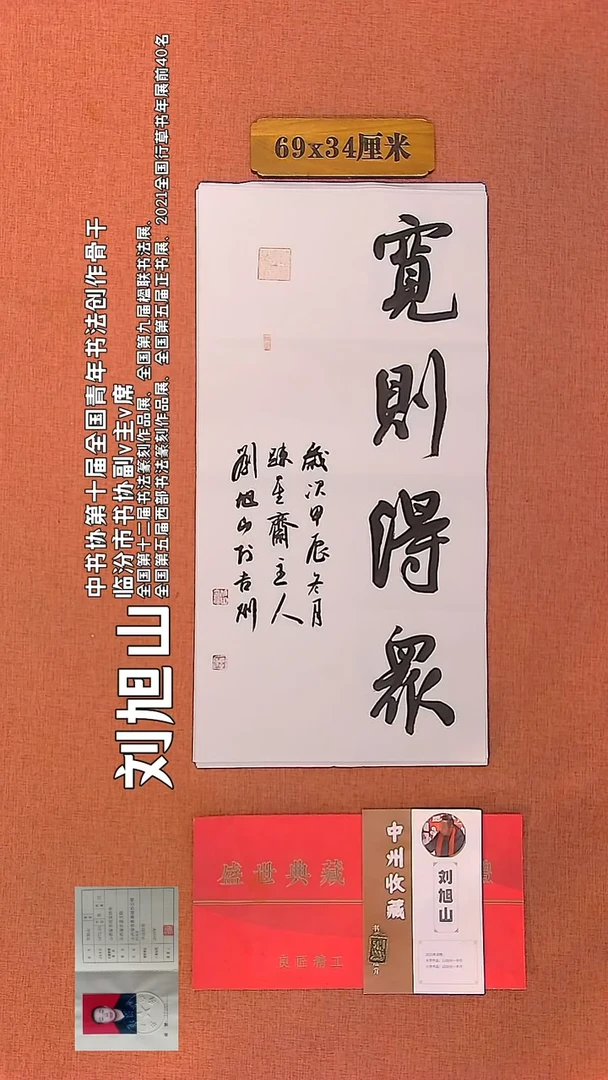 69x34厘米
寬則得眾
歲次甲辰冬月
疎星齋主人
劉旭山於吉州
中书协第十届全国青年书法创作骨干
临汾市书协副v主v席
全国第十二届书法篆刻作品展、全国第九届楹联书法展、
全国第五届西部书法篆刻作品展、全国第五届正书展、2021全国行草书年展前40名
刘旭山
盛世典藏
良匠精工
中州收藏
刘旭山